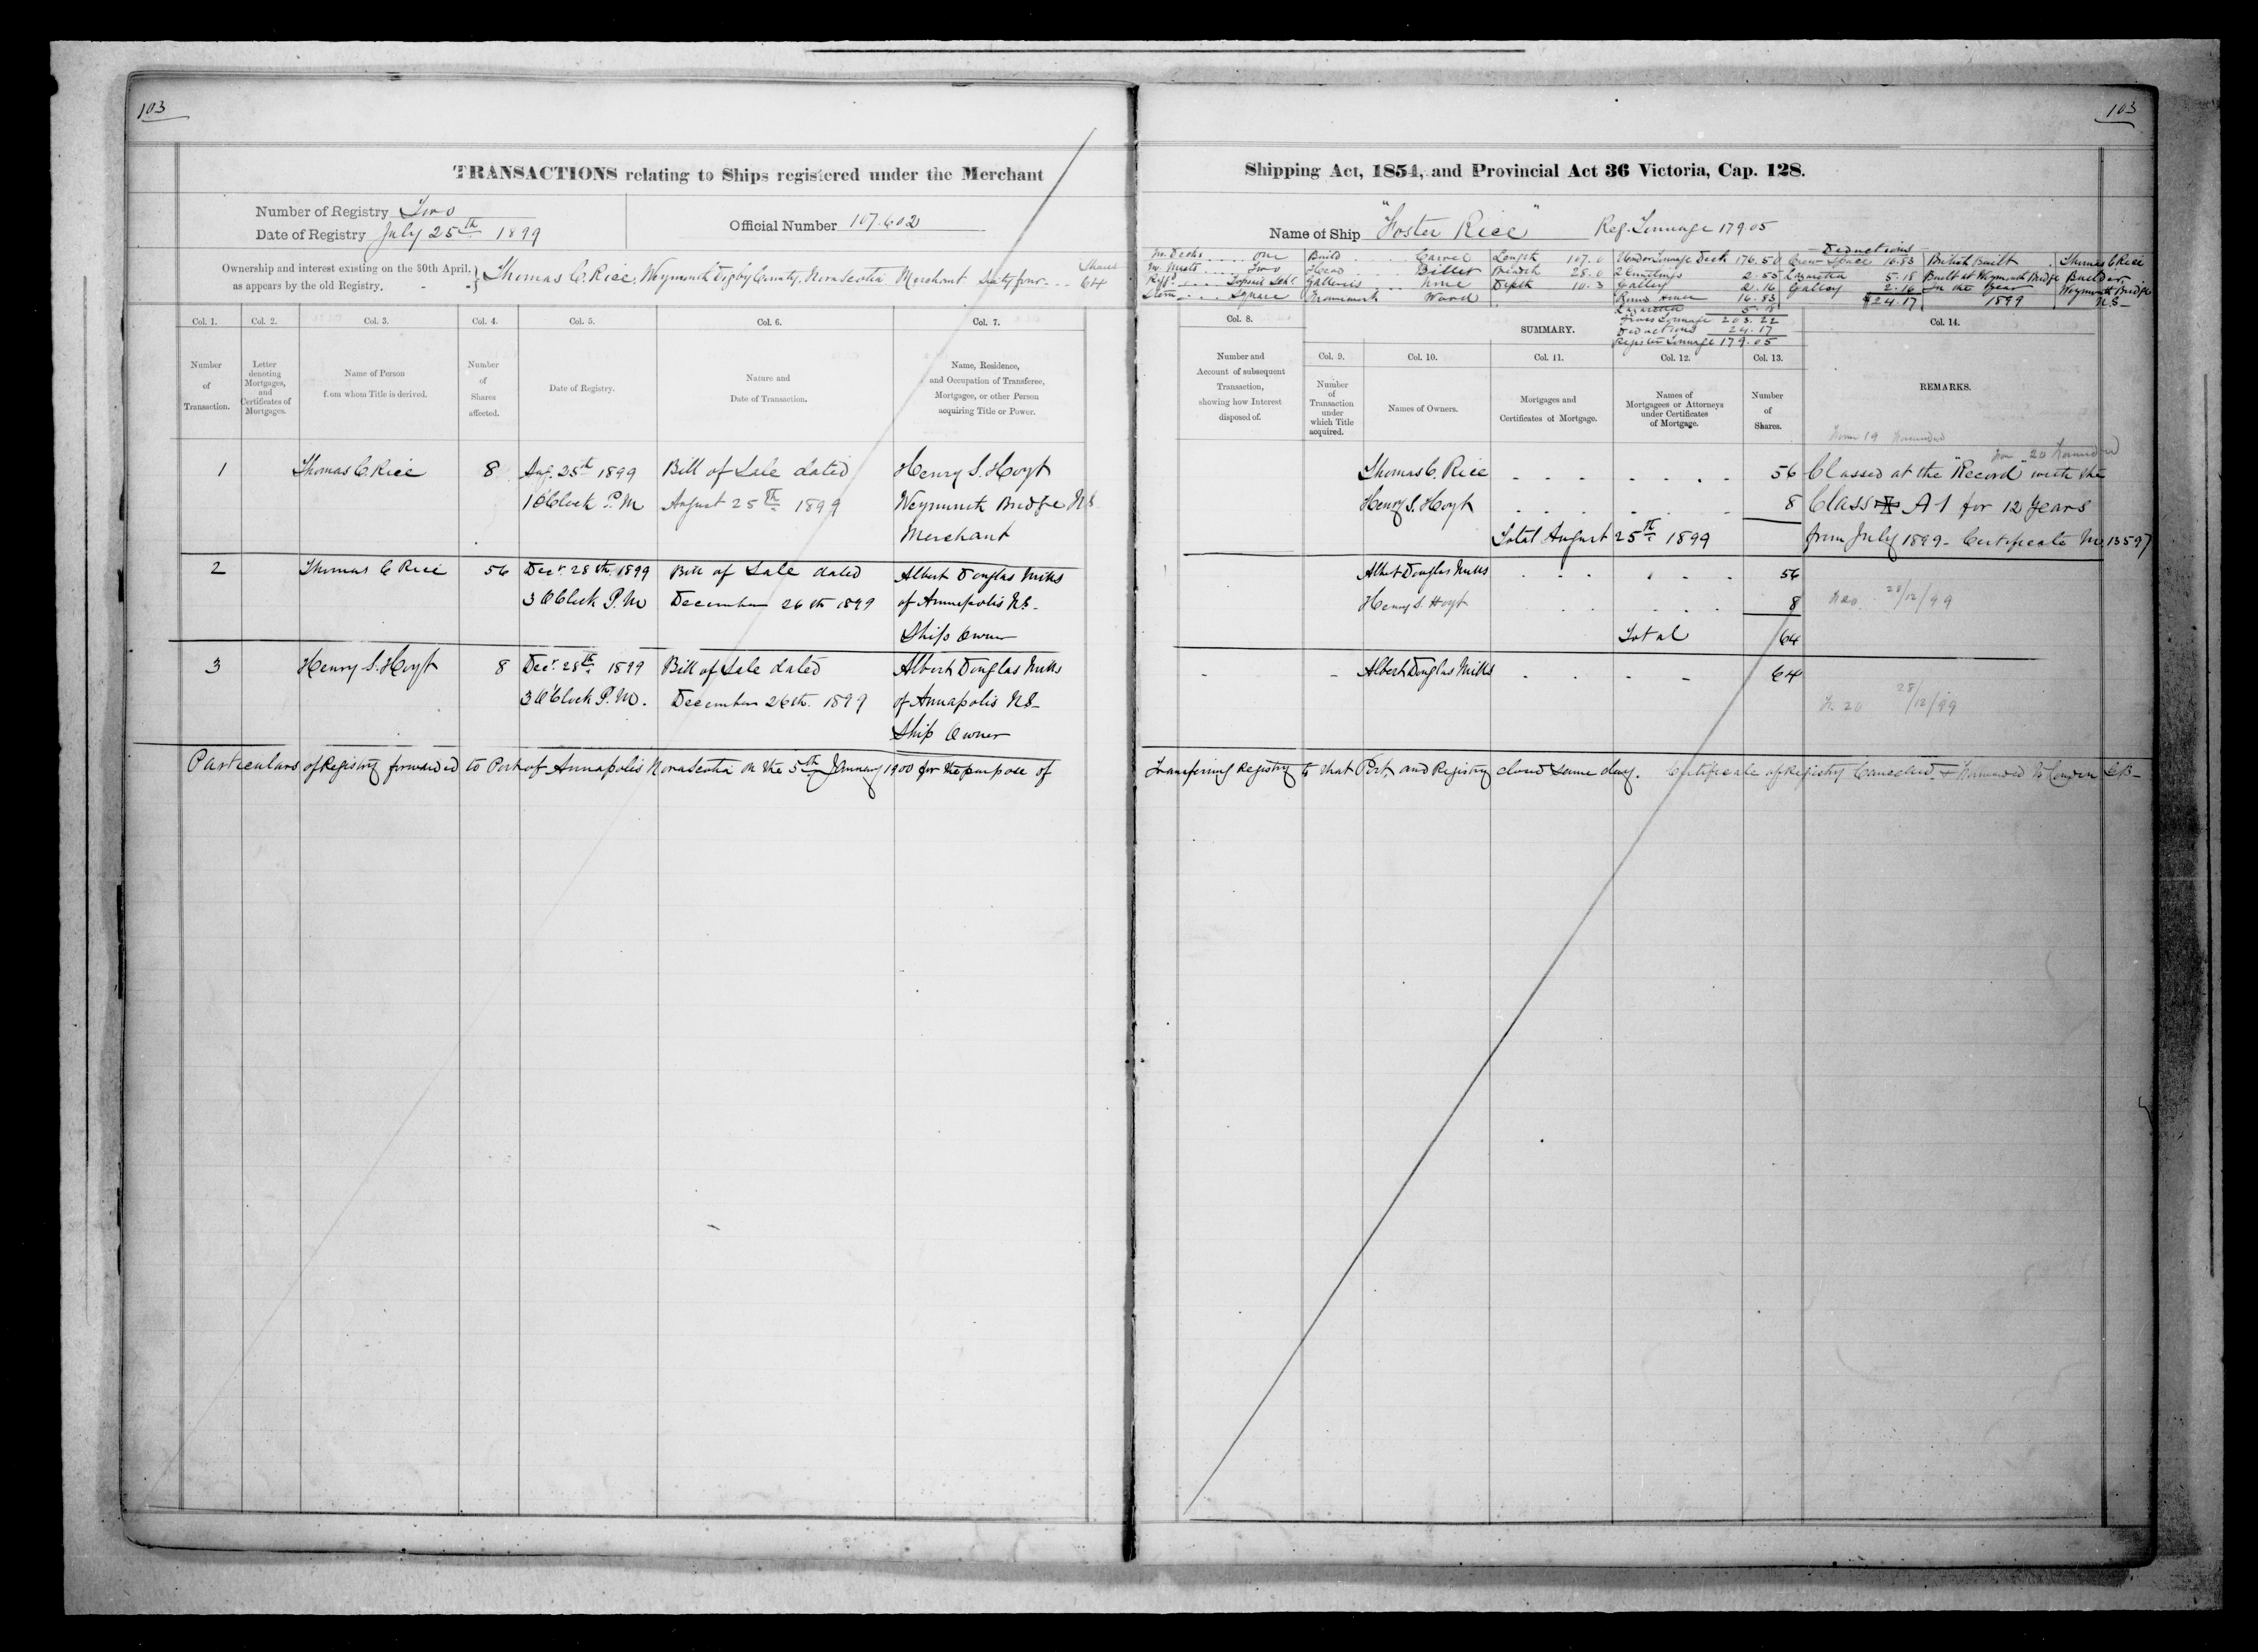 103
TRANSACTIONS relating to Ships registered under the Merchant
Number of Registry Two
Date of Registry July 25th 1899
Official Number 107.602
Ownership and interest existing on the 30th April,
as appears by the old Registry.
Thomas C. Rice, Weymouth Digby County, Nova Scotia Merchant Sixty four - - -
Shares
64
Col. 1. Col. 2. Col. 3. Col. 4. Col. 5. Col. 6. Col. 7.
Number
of
Transaction.
Letter
denoting
Mortgages,
and
Certificates of
Mortgages.
Name of Person
from whom Title is derived.
Number
of
Shares
affected.
Date of Registry.
Nature and
Date of Transaction.
Name, Residence,
and Occupation of Transferee,
Mortgagee, or other Person
acquiring Title or Power.
1 Thomas C. Rice 8 Aug. 25th 1899 Bill of Sale dated Henry S. Hoyt
1 O'Clock P.M August 25th 1899 Weymouth Bridge N.S
Merchant
2 Thomas C Rice 56 Decr 28th 1899 Bill of Sale dated Albert Douglas Mills
3 O'Clock P.M December 26th 1899 of Annapolis N.S-
Ship Owner
3 Henry S. Hoyt 8 Decr 28th 1899 Bill of Sale dated Albert Douglas Mills
3 O'Clock P.M. December 26th. 1899 of Annapolis N.S-
Ship Owner
Particulars of Registry forwarded to Port of Annapolis Nova Scotia on the 5th January 1900 for the purpose of
103
Shipping Act, 1854, and Provincial Act 36 Victoria, Cap. 128.
Name of Ship "Foster Rice" Reg. Tonnage 179.05
No. Decks . . . . . One
No. Masts . . . . Two
Rigg'd . . . . Topsail Schr.
Stern . . . . Square
Build . . . . Carvel
Head . . . . Billet
Galleries . . . . None
Framework Wood
Length 107.0
Breadth 28.0
Depth 10.3
Under Tonnage Deck 176.50
2.55
Galley 2.16
16.83
Lazaretta 5.18
Gross Tonnage 203.22
Deductions 24.17
Register Tonnage 179.05
Deductions
Crew Space 16.83
Lazaretta 5.18
Galley 2.16
24.17
British Built
Built at Weymouth Bridge
In the Year
1899
Thomas C Rice
Builder
Weymouth Bridge
N.S-
Col. 8.
Number and
Account of subsequent
Transaction,
showing how Interest
disposed of.
SUMMARY.
Col. 9.
Number
of
Transaction
under
which Title
acquired.
Col. 10.
Names of Owners.
Col. 11.
Mortgages and
Certificates of Mortgage.
Col. 12.
Names of
Mortgagees or Attorneys
under Certificates
of Mortgage.
Col. 13.
Number
of
Shares.
Col. 14.
REMARKS.
Form 19 Forwarded
20 Forwarded
Thomas C. Rice 56 Classed at the "Record" with the
Henry S. Hoyt 8 Class A 1 for 12 Years
Total August 25th 1899 from July 1899- Certificate No 13597
Albert Douglas Mills 56
Henry S. Hoyt 8 28/12/99
Total 64
Albert Douglas Mills 64
20 28/12/99
Transferring Registry to that Port, and Registry closed same day. Certificate of Registry Cancelled & Forwarded to London G.B-